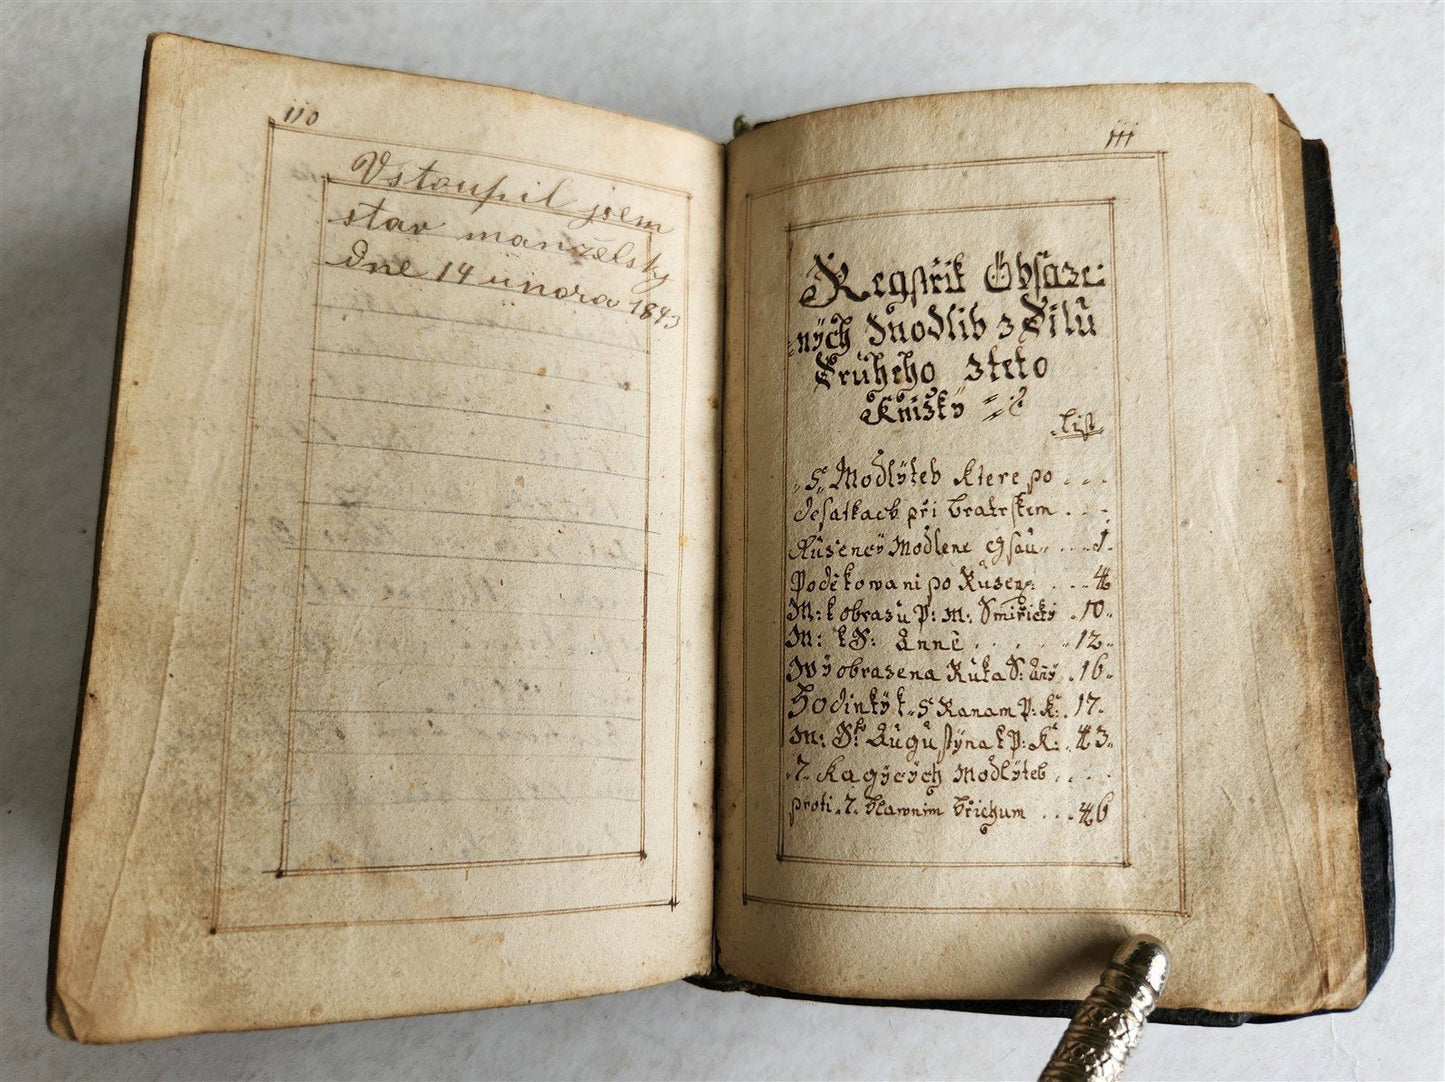 110
Vstoupil jsem
stav manželsky
dne 14 unora 1843
111
Regstřik Obsaze:
:ných Modlib z Dilů
Druheho zteto
Knižkÿ
List
5 Modlÿteb Ktere po . . .
desatkach při bratrskem . . .
Růženeÿ Modlene gsau . . . 1.
Poděkowani po Růžen: . . . 4
M: k obrazů P: M: Smiřickÿ . 10.
M: k S: Anně . . . . . 12.
Wÿobrazena Růka S: Añÿ . 16.
Hodinkÿ k 5 Ranam P: K: . 17.
M: S: Augustÿna k P: K: . 43.
.7. Kagÿcÿch Modlÿteb . . . .
proti .7. hlawnim hřichum . . . 46